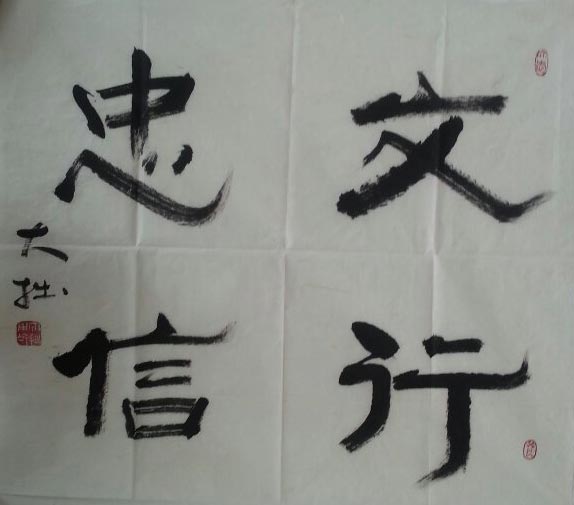 文行
忠信
大拙